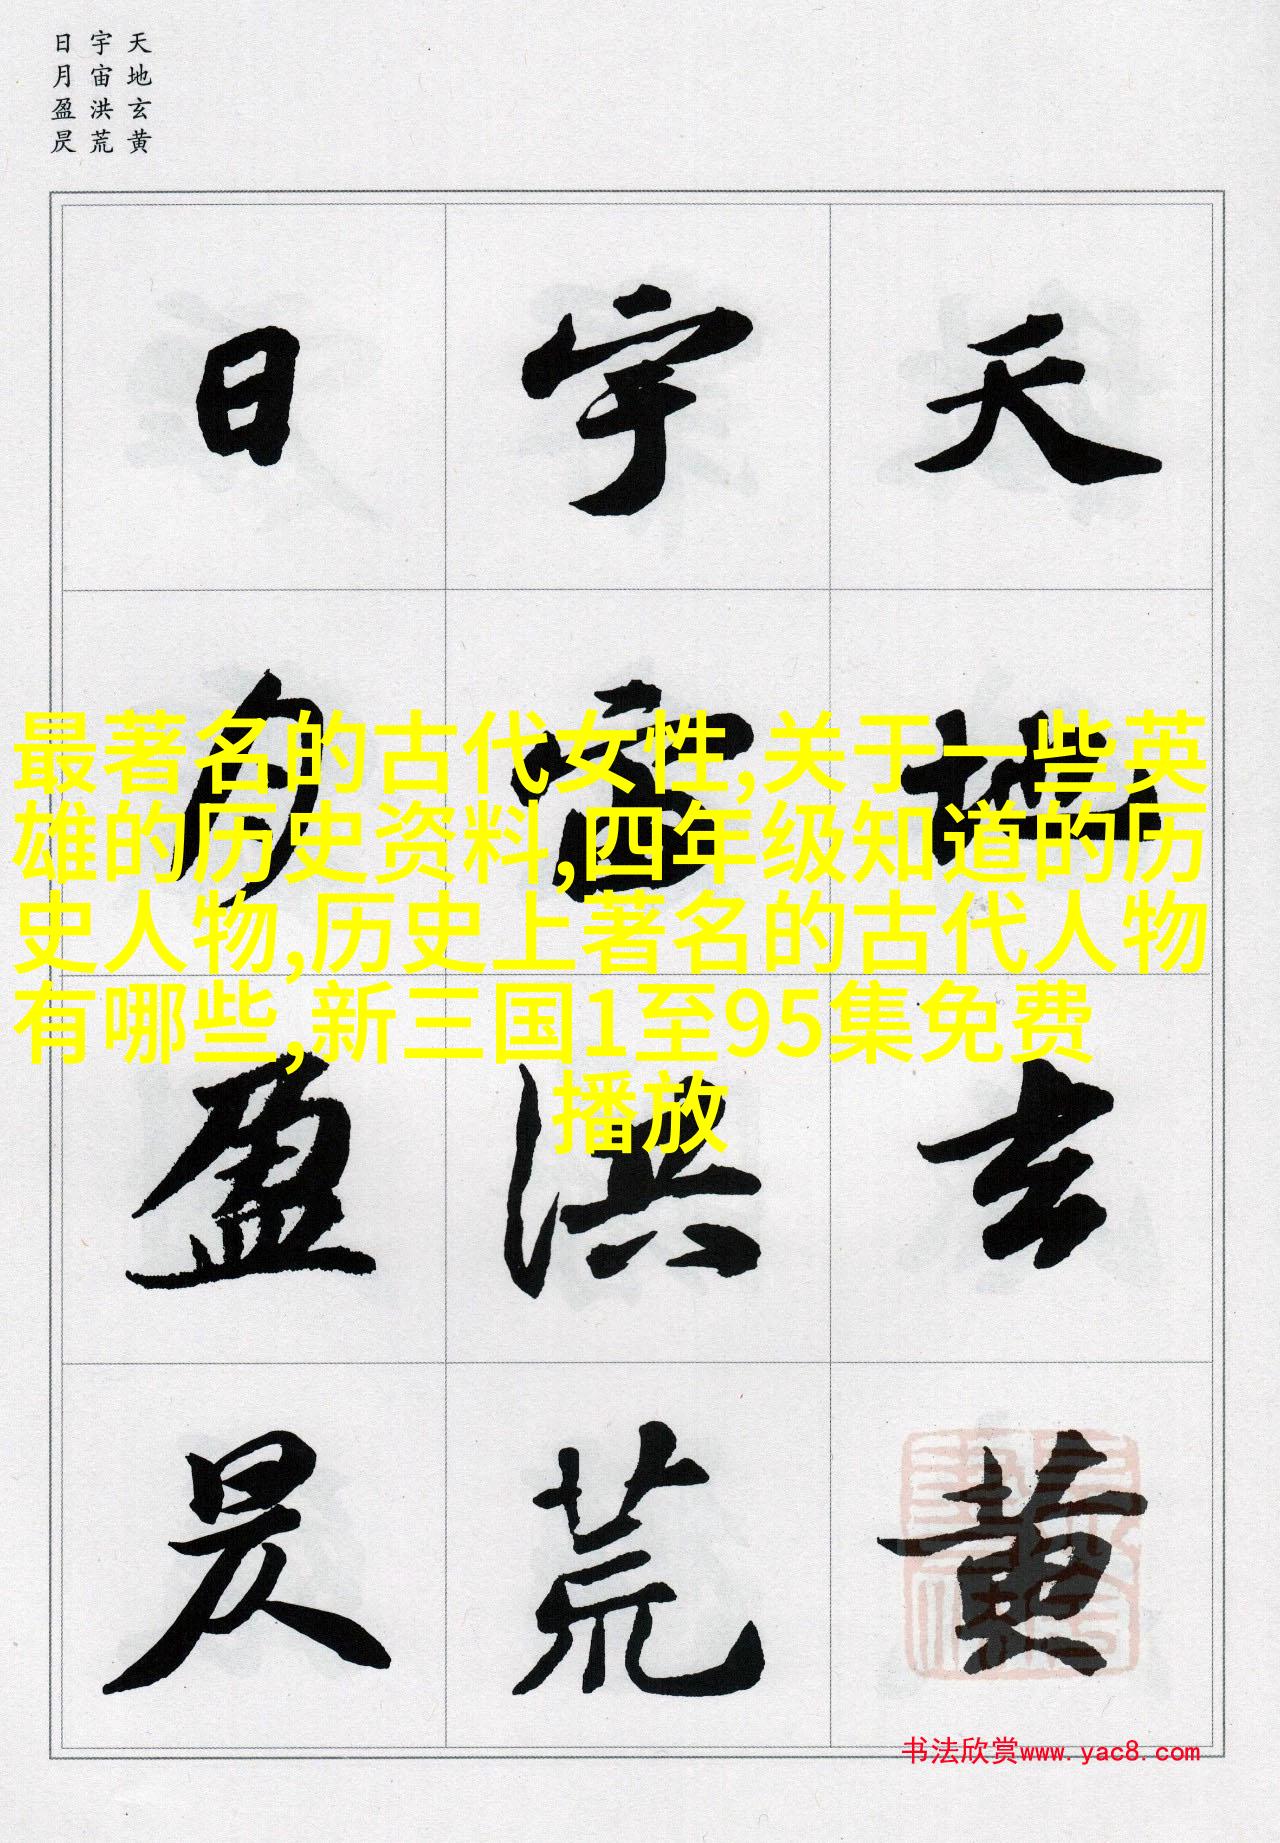 天地玄黄
宇宙洪荒
日月盈昃
天地玄黄
宇宙洪荒
日月盈昃
最著名的古代女性,关于一些英
雄的历史资料,四年级知道的历
史人物,历史上著名的古代人物
有哪些,新三国1至95集免费
播放
书法欣赏www.yac8.com